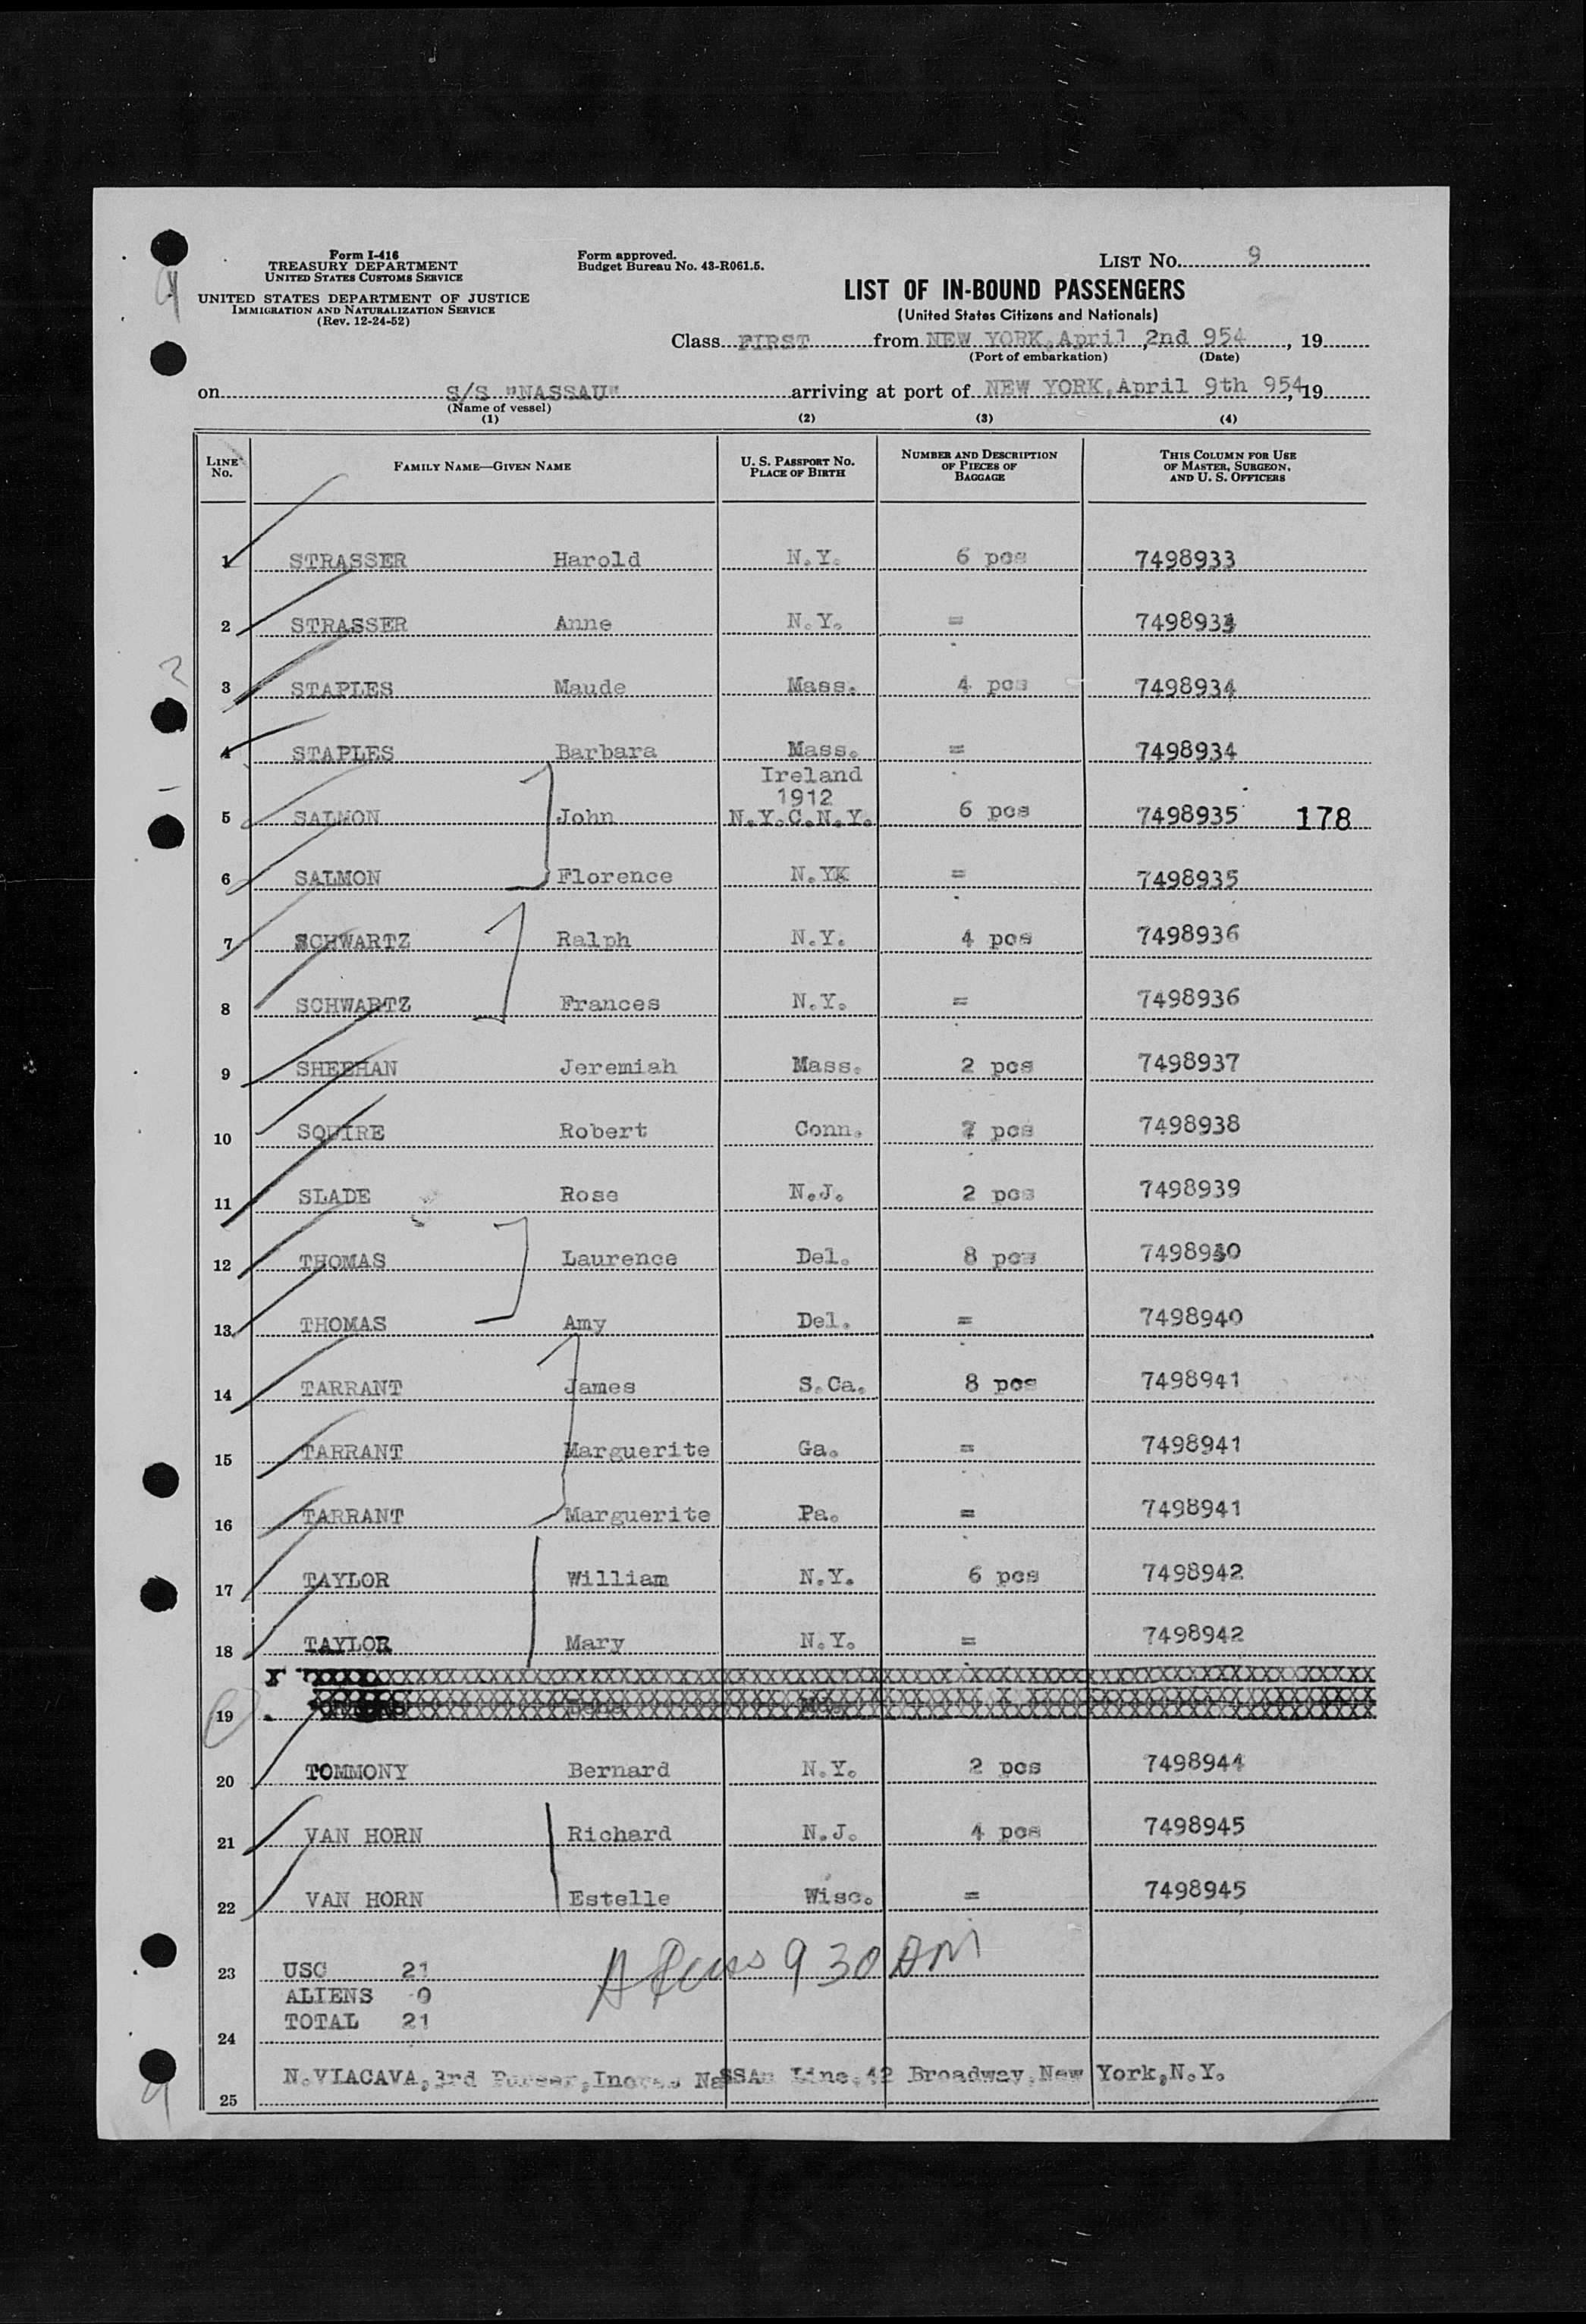 Form I-416
TREASURY DEPARTMENT
UNITED STATES CUSTOMS SERVICE
UNITED STATES DEPARTMENT OF JUSTICE
IMMIGRATION AND NATURALIZATION SERVICE
(Rev. 12-24-52)
Form approved.
Budget Bureau No. 43-R061.5.
LIST No. 9
LIST OF IN-BOUND PASSENGERS
(United States Citizens and Nationals)
Class FIRST from NEW YORK, April 2nd 954, 19
(Port of embarkation) (Date)
on S/S "NASSAU" arriving at port of NEW YORK, April 9th 954, 19
(Name of vessel)
(1) (2) (3) (4)
LINE No. FAMILY NAME—GIVEN NAME U. S. PASSPORT No. PLACE OF BIRTH NUMBER AND DESCRIPTION OF PIECES OF BAGGAGE THIS COLUMN FOR USE OF MASTER, SURGEON, AND U. S. OFFICERS
1 STRASSER Harold N.Y. 6 pcs 7498933
2 STRASSER Anne N.Y. = 7498933
3 STAPLES Maude Mass. 4 pcs 7498934
4 STAPLES Barbara Mass. = 7498934
Ireland
1912
5 SALMON John N.Y.C.N.Y. 6 pcs 7498935 178
6 SALMON Florence N.Y. = 7498935
7 SCHWARTZ Ralph N.Y. 4 pcs 7498936
8 SCHWARTZ Frances N.Y. = 7498936
9 SHEEHAN Jeremiah Mass. 2 pcs 7498937
10 SQUIRE Robert Conn. pcs 7498938
11 SLADE Rose N.J. 2 pcs 7498939
12 THOMAS Laurence Del. 8 pcs 7498940
13 THOMAS Amy Del. = 7498940
14 TARRANT James S.Ca. 8 pcs 7498941
15 TARRANT Marguerite Ga. = 7498941
16 TARRANT Marguerite Pa. = 7498941
17 TAYLOR William N.Y. 6 pcs 7498942
18 TAYLOR Mary N.Y. = 7498942
19
20 TOMMONY Bernard N.Y. 2 pcs 7498944
21 VAN HORN Richard N.J. 4 pcs 7498945
22 VAN HORN Estelle Wisc. = 7498945
23 USC 21 9 30 AM
ALIENS 0
TOTAL 21
24
N.VIACAVA, 3rd Purser, Incres NaSSAu Line, 42 Broadway, New York, N.Y.
25